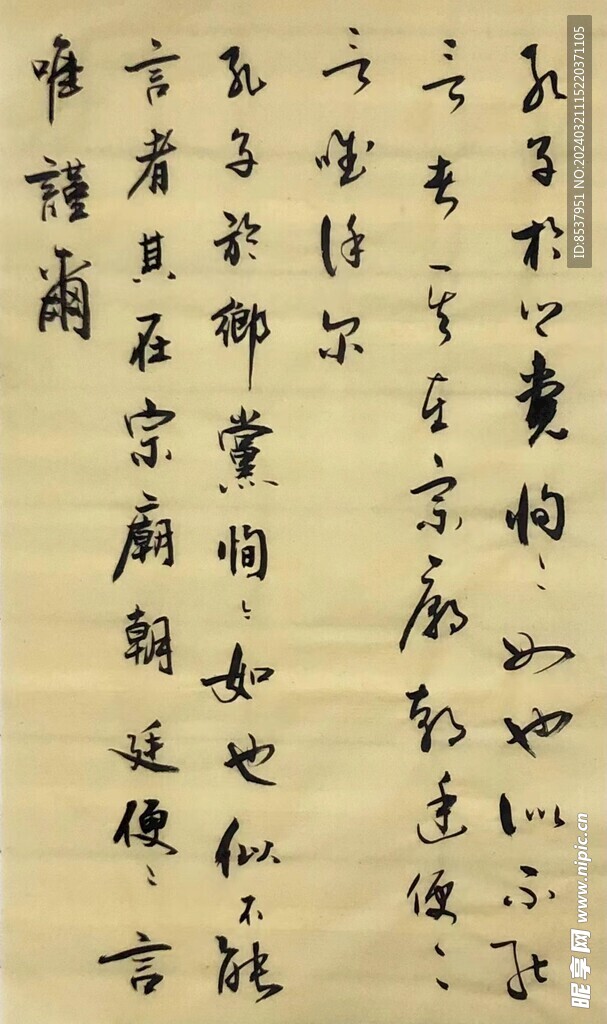 孔子於鄉黨恂〻如也似不能
言者其在宗廟朝廷便〻
言唯謹尔
孔子於鄉黨恂〻如也似不能
言者其在宗廟朝廷便〻言
唯謹爾
ID:8537951 NO:20240321115220371105
昵享网 www.nipic.cn